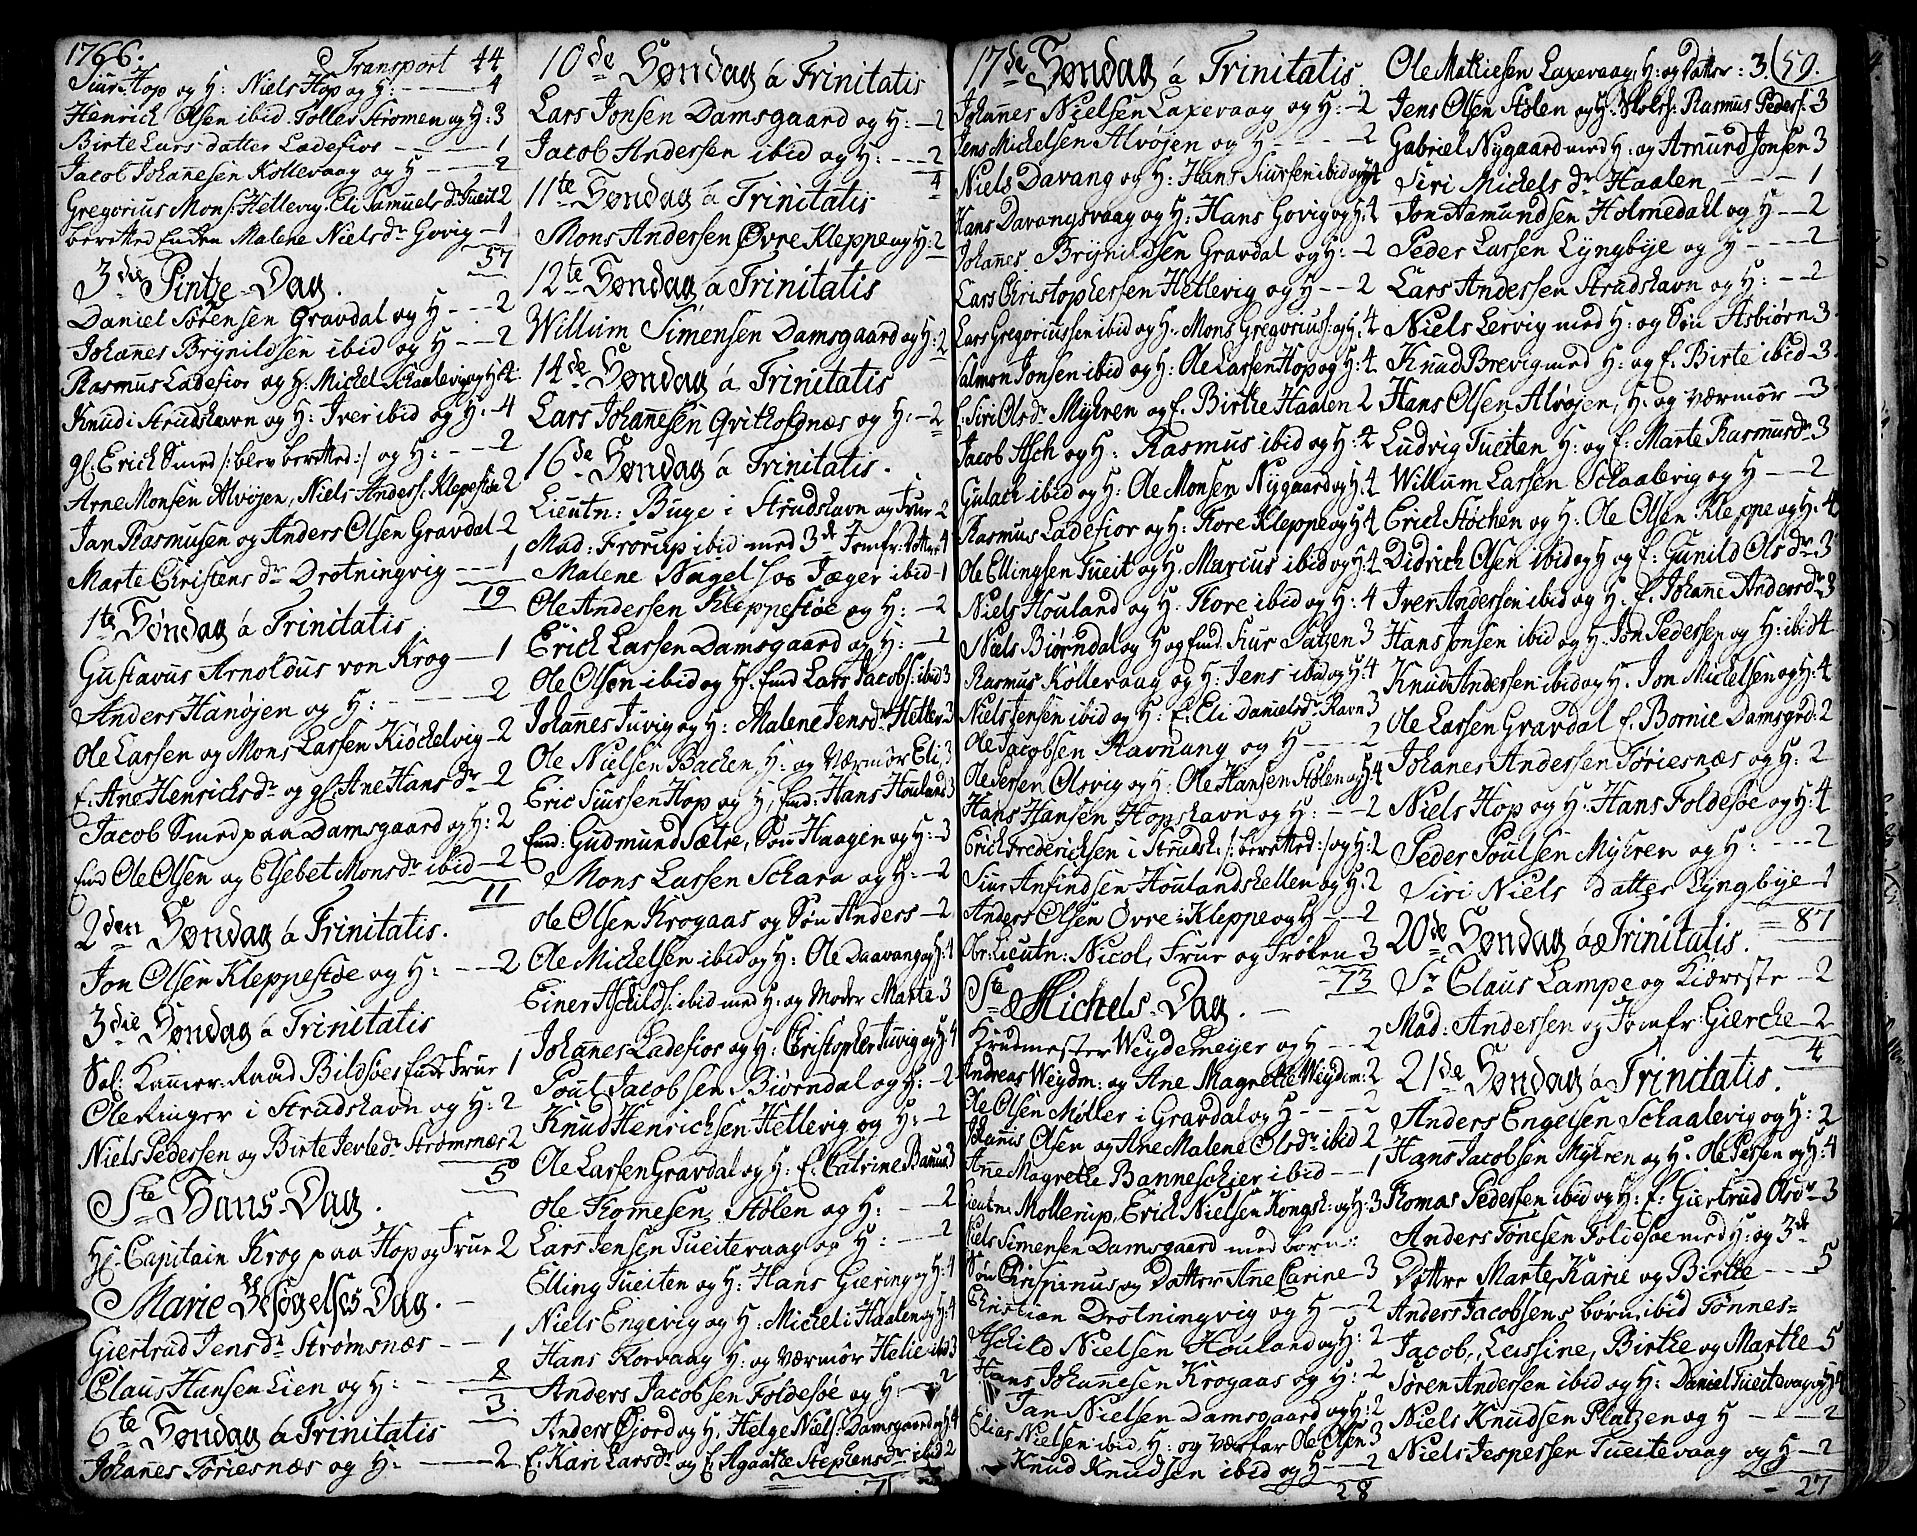 1766.
Transport 44
Siur Hop og H: Niels Hop og H: - 4
Henrich Olsen ibid. Tollev Strømen og H: 3
Birte Lars datter Ladefior - 1
Jacob Johannesen Kollevaag og H - 2
Gregorius Mons: Hettevig. Eli Samuels dr Tueit 2
beretted Enken Malene Nielsdr Govig - 1
57
3die Pintze-Dag.
Daniel Sørensen Gravdal og H - 2
Johannes Brynildsen ibid og H - 2
Rasmus Ladefior og H: Michel Schaalevig og H: 4
Knud i Strudshavn og H: Iver ibid og H: - 4
gl: Erick Smed /: blev berettet :/ og H: - 2
Arne Monsen Alvøjen, Niels Anders: Klepestøe 2
Jan Rasmusen og Anders Olsen Gravdal - 2
Marte Christens dr Drotningvig - 1
19
1te Søndag á Trinitatis
Gustavus Arnoldus von Krog - 1
Anders Hanøjen og H: - 2
Ole Larsen og Mons Larsen Kiøckelvig - 2
f: Ane Henrichsdr og gl: Ane Hans dr - 2
Jacob Smed paa Damsgaard og H: 2
Emd Ole Olsen og Elsebet Monsdr ibid - 2
11
2den Søndag á Trinitatis.
Jon Olsen Kleppestøe og H: - 2
3die Søndag á Trinitatis
Sal: Kammer-Raad Bildsøes Enke Frue 1
Ole Ringer i Strudshavn og H: 2
Niels Pedersen og Birte Jerledr Strømsnæs 2
5
Ste Hans-Dag.
Hr Capitain Krog paa Hop og Frue 2
Marie Besøgelses Dag.
Giertrud Jensdr Strømsnæs - 1
Claus Hansen Lien og H: - 2
3.
6te Søndag á Trinitatis
Johannes Tøriesnæs og H: - 2
10de Søndag á Trinitatis
Lars Jonsen Damsgaard og H: - 2
Jacob Andersen ibid og H: - 2
4
11te Søndag á Trinitatis
Mons Andersen Øvre Kleppe og H: 2
12te Søndag á Trinitatis
Willum Simensen Damsgaard og H: 2
14de Søndag á Trinitatis
Lars Johannesen Qvithofdnæs og H: - 2
16de Søndag á Trinitatis.
Lieutn: Buge i Strudshavn og Frue 2
Mad: Frorup ibid med 3de Jomfr: Døttre 4
Malene Nagel hos Jæger ibid - 1
Ole Andersen Kleppestøe og H: - 2
Erick Larsen Damsgaard og H: - 2
Ole Olsen ibid og H. Emd Lars Jacobs: ibid 3
Johanes Juvig og H: Malene Jensdr Hetlev 3
Ole Nielsen Backen, H: og Værmor Eli 3
Eric Siursen Hop og H: Emd: Hans Houland 3
Emd: Gudmund Sætre, Søn Haagen og H: - 3
Mons Larsen Schara og H: - 2
Ole Olsen Krogaas og Søn Anders - 2
Ole Mickelsen ibid og H: Ole Daavang og H: 4
Einer Aschilds: ibid med H: og Moder Marte - 3
Johannes Ladefior og H: Christopher Juvig og H: 4
Poul Jacobsen Biørndal og H: - 2
Knud Henrichsen Hettevig og H: - 2
Ole Larsen Gravdal og H: f: Catrine 3
Ole Thomesen Stølen og H: - 2
Lars Jensen Tueitevaag og H: - 2
Elling Tueiten og H: Hans Giering og H: 4
Niels Engevig og H: Michel i Haalen og H: 4
Hans Korvaag H: og Værmor Helie ibid 3
Anders Jacobsen Foldesøe og H: - 2
Anders Øjord og H, Helge Niels: Damsgaard og H: 4
f: Kari Larsdr og f: Agaatte Stephensdr ibid 2
71
17de Søndag á Trinitatis
Johannes Nielsen Laxevaag og H: - 2
Jens Mickelsen Alvøjen og H - 2
Niels Davang og H: Hans Siursen ibid og H: 4
Hans Davangsvaag og H: Hans Govig og H: 4
Johannes Brynildsen Gravdal og H: - 2
Lars Christophersen Hettevig og H - 2
Lars Gregoriussen ibid og H: Mons Gregorius: og H: 4
Salmon Jonsen ibid og H: Ole Larsen Hop og H: 4
f: Siri Olsdr Myhren og f. Birthe Haalen 2
Jacob Asch og H: Rasmus ibid og H: 4
Gulach ibid og H: Ole Monsen Nygaard og H: 4
Rasmus Ladefior og H: Tore Kleppe og H: 4
Ole Ellingsen Tueit og H. Marcus ibid og H: 4
Niels Houland og H: Tore ibid og H: 4
Niels Biørndal og H og Emd. Siur Satzen 3
Rasmus Kollevaag og H: Jens ibid og H: 4
Niels Jensen ibid og H: f: Eli Danielsdr Ravn 3
Ole Jacobsen Stavnang og H - 2
Ole Persen Olsvig og H: Ole Hansen Stølen og H: 4
Hans Hansen Hopshavn og H: - 2
Erick Fredericksen i Strudsh: /: berettet :/ og H: 2
Siur Anfindsen Houlandshellen og H: 2
Anders Olsen Øvre Kleppe og H - 2
Obr: Lieutn: Nicol, Frue og Frøken - 3
73
Ste Michels-Dag.
Krudmester Weydemeyer og H - 2
Andreas Weydm: og Ane Magrethe Weydm: 2
Ole Olsen Møller i Gravdal og H - 2
Johannis Olsen og Ane Malene Olsdr ibid 2
Ane Magrethe Banneschier ibid - 1
Lieutn: Mollerup, Erick Nielsen Kongsh: og H: 3
Niels Simensen Damsgaard med børn:
Søn Chrispinus og Datter Ane Carine - 3
Christian Drotningvig og H - 2
Aschild Nielsen Houland og H: 2
Hans Johannesen Krogaas og H: 2
Jan Nielsen Damsgaard og H: 2
Elias Nielsen ibid, H: og Værfar Ole Olsen 3
Knud Knudsen ibid og H - 2
28
Ole Mathiesen Laxevaag, H: og Datter: 3. (59.
Jens Olsen Stølen og H. Skolh: Rasmus Peders: 3
Gabriel Nygaard med H: og Amund Jonsen 3
Siri Mickels dr Haalen - 1
Jon Aamundsen Holmedahl og H - 2
Peder Larsen Lyngbye og H - 2
Lars Andersen Strudshavn og H: - 2
Niels Lervig med H: og Søn Asbiørn 3.
Knud Brevig med H: og f. Birte ibid - 3.
Hans Olsen Alvøjen, H: og Værmor - 3
Ludvig Tueiten H: og f: Marte Rasmusdr 3
Willum Larsen Schaalevig og H - 2
Erick Støchen og H: Ole Olsen Kleppe og H: 4
Didrich Olsen ibid og H og f: Gunild Ols dr 3
Iver Andersen ibid og H. f. Johanne Andersdr 3
Hans Jonsen ibid og H. Jon Pedersen og H: ibid 4
Knud Andersen ibid og H. Jon Mickelsen og H: 4
Ole Larsen Gravdal f. Bornie Damsgrd: 2
Johanes Andersen Tøriesnæs og H: 2
Niels Hop og H: Hans Foldesøe og H: 4
Peder Poulsen Myhren og H: - 2
Siri Niels datter Lyngbye - 1
87
20de Søndag á Trinitatis.
Sr Claus Lampe og Kiæreste - 2
Mad: Andersen og Jomfr: Gierche - 2
4
21de Søndag á Trinitatis.
Anders Engelsen Schaalevig og H: 2
Hans Jacobsen Myhren og H. Ole Persen og H: 4
Thomas Pedersen ibid og H: f: Giertrud Olsdr 3
Anders Tønesen Foldesøe med H: og 3de
Døttre Marte, Karie og Birthe - 5
Anders Jacobsens børn ibid Tønnes=
Jacob, Leussine, Birthe og Marthe 5
Søren Andersen ibid og H: Daniel Tueitevaag og H: 4
Niels Knudsen Platzen og H - 2
Niels Jespersen Tueitevaag og H - 2
27